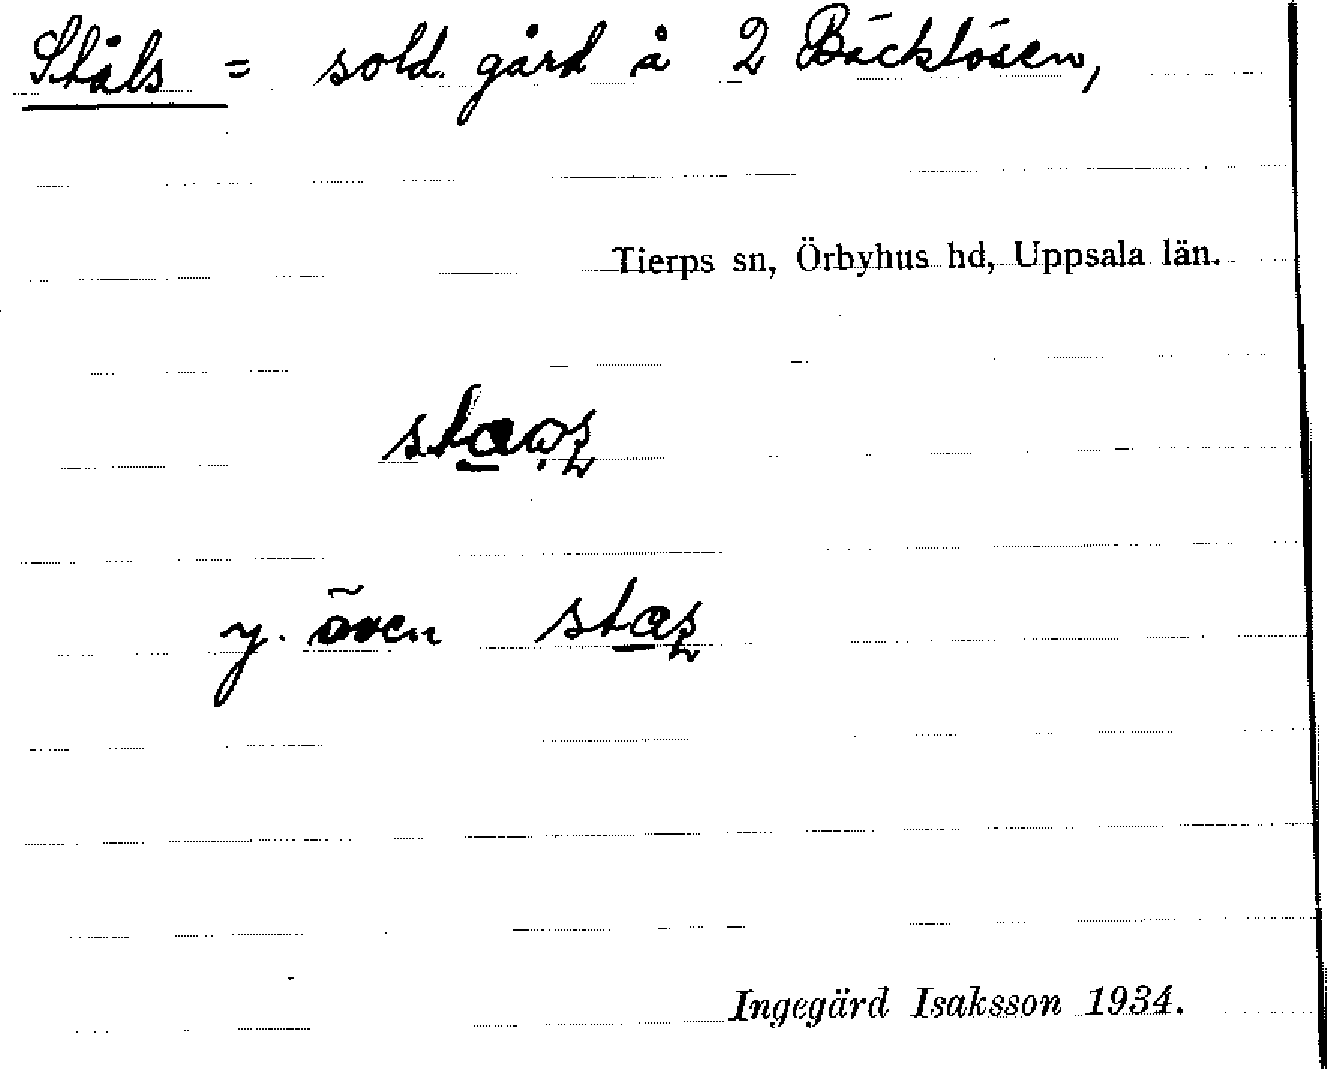 Ståls = sold. gård å 2 Bäcklösen,
Tierps sn, Örbyhus hd, Uppsala län.
y. även
Ingegärd Isaksson 1934.